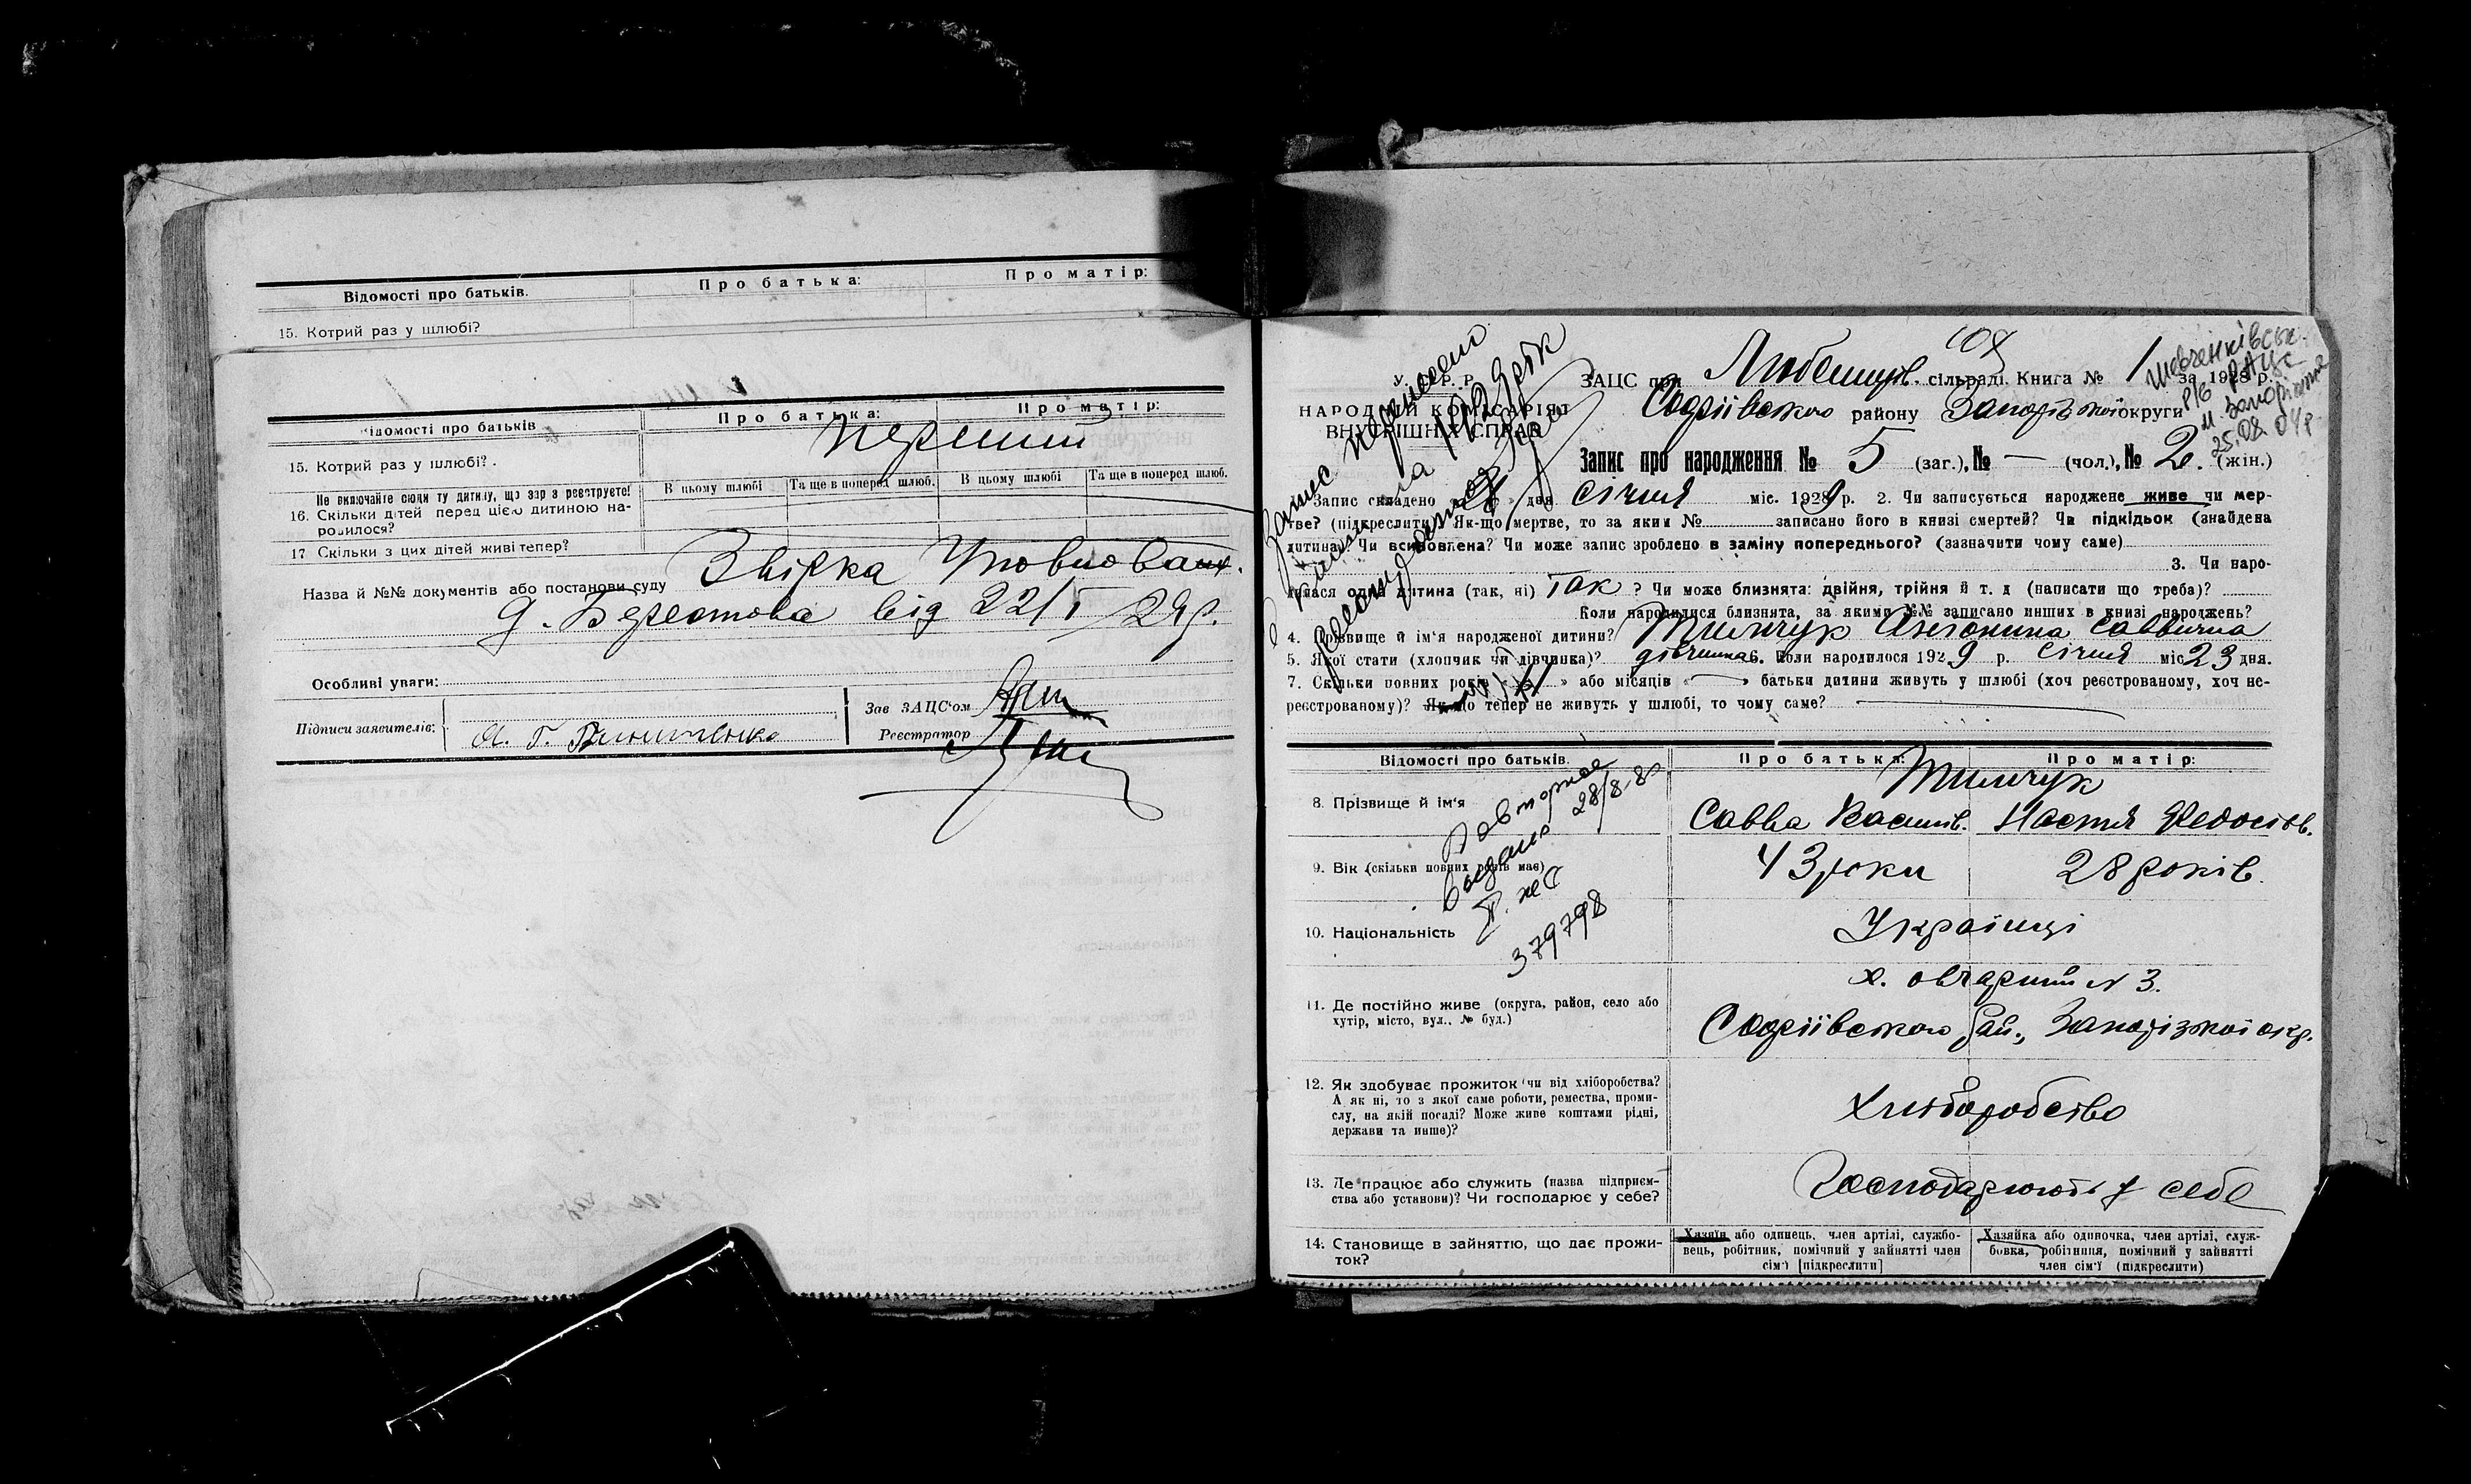 Відомості про батьків. Про батька: Про матір:
15. Котрий раз у шлюбі?
Відомості про батьків Про батька: Про матір:
15. Котрий раз у шлюбі? перший
Не включайте сюди ту дитину, що зараз реєструєте!
В цьому шлюбі Та ще в поперед шлюб. В цьому шлюбі Та ще в поперед шлюб.
16. Скільки дітей перед цією дитиною на-
родилося?
17 Скільки з цих дітей живі тепер?
Назва й №№ документів або постанови суду Звірка
від 22/I 29р.
Особливі уваги:
Підписи заявителів:
Зав ЗАЦС'ом
Реєстратор
109
У. С. Р. Р.
НАРОДНІЙ КОМІСАРІЯТ
ВНУТРІШНІХ СПРАВ
ЗАЦС при Любеицків. сільраді. Книга № 1 за 1928 р.
Софіївського району Запорізької округи
Шевченківськ.
РВ РАЦС
м. Запоріжжя
25.08.04р
Запис про народження № 5 (заг.), № — (чол.), № 2. (жін.)
Запис складено дня січня міс. 1929 р. 2. Чи записується народжене живе чи мер-
тве? (підкреслити) Як-що мертве, то за яким № записано його в книзі смертей? Чи підкідьок (знайдена
дитина)? Чи всиновлена? Чи може запис зроблено в заміну попереднього? (зазначити чому саме)
3. Чи наро-
дилася одна дитина (так, ні) так ? Чи може близнята: двійня, трійня й т. д (написати що треба)?
Коли народилися близнята, за якими №№ записано инших в книзі народжень?
4. Прізвище й ім'я народженої дитини? Тимчук Антонина Саввична
5. Якої стати (хлопчик чи дівчинка)? дівчинка 6. Коли народилося 1929 р. січня міс 23 дня.
7. Скільки повних років « » або місяців « — » батьки дитини живуть у шлюбі (хоч реєстрованому, хоч не-
реєстрованому)? Як-що тепер не живуть у шлюбі, то чому саме?
Відомості про батьків. Про батька: Про матір:
Тимчук
8. Прізвище й ім'я Савва Васил­ів. Настя Федосіів.
Повторное
выдано 28/8-80
379798
9. Вік (скільки повних років має) 43 роки 28 років.
10. Національність Українці
х. овчарний N 3.
11. Де постійно живе (округа, район, село або
хутір, місто, вул., № буд.) Софіївського рай., Запорізької окр.
12. Як здобуває прожиток чи від хліборобства?
А як ні, то з якої саме роботи, ремества, проми-
слу, на якій посаді? Може живе коштами рідні,
держави та инше)?
Хліборобство
13. Де працює або служить (назва підприєм-
ства або установи)? Чи господарює у себе? Господарюють у себе
14. Становище в зайняттю, що дає прожи-
ток?
Хазяїн або одинець, член артілі, службо-
вець, робітник, помічний у зайнятті член
сім'ї [підкреслити]
Хазяйка або одиночка, член артілі, служ-
бовка, робітниця, помічний у зайнятті
член сім'ї (підкреслити)